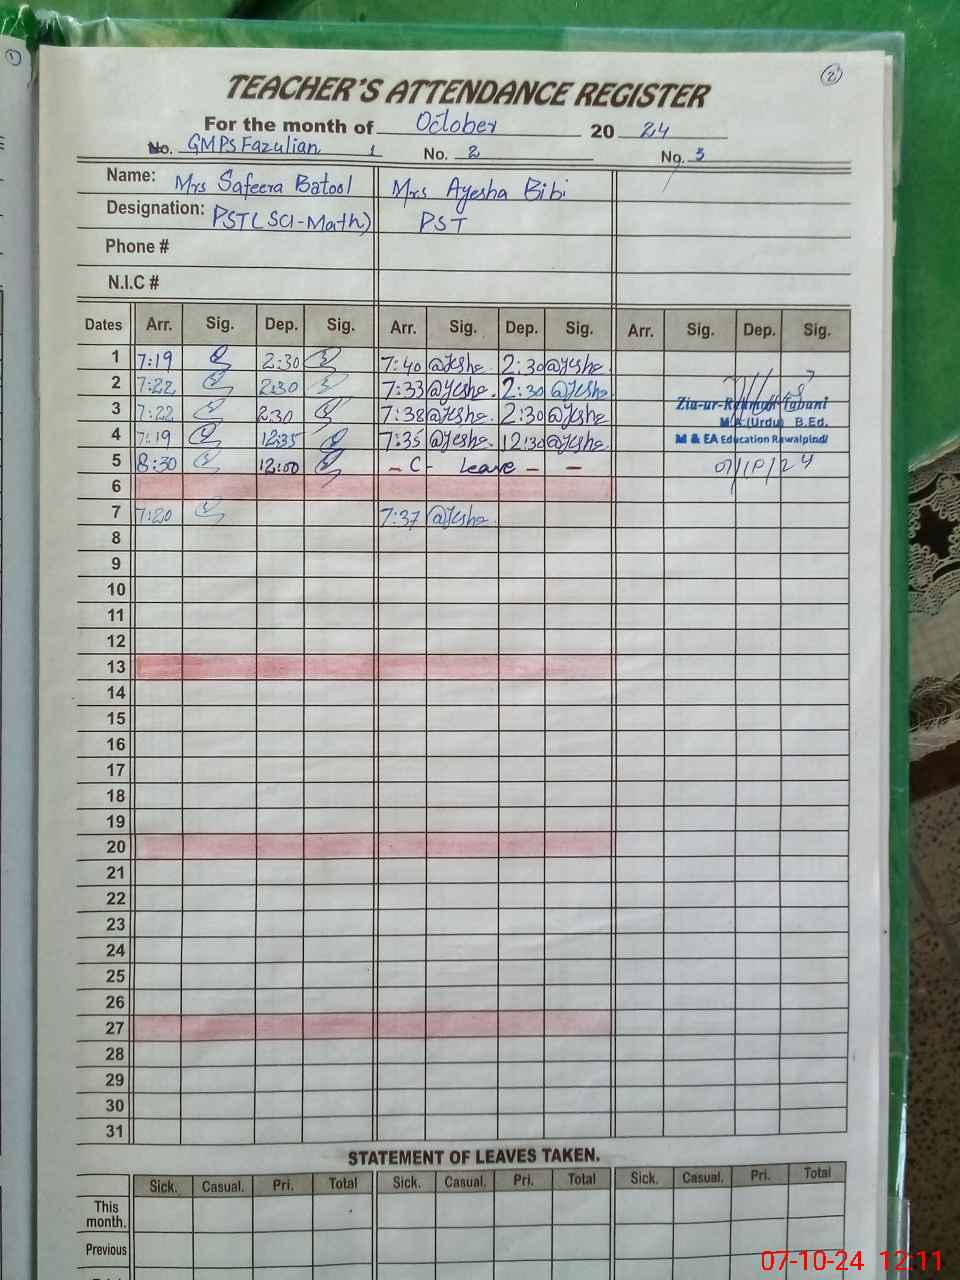 1
2
TEACHER'S ATTENDANCE REGISTER
For the month of October 2024
No. GMPS Fazulian 1 No. 2 No. 3
Name: Mrs Safeera Batool Mrs Ayesha Bibi
Designation: PST (SCI-Math) PST
Phone #
N.I.C #
Dates Arr. Sig. Dep. Sig. Arr. Sig. Dep. Sig. Arr. Sig. Dep. Sig.
1 7:19 2:30 7:40 @yesha 2:30 @yesha
2 7:22 2:30 7:33 @yesha 2:30 @yesha
3 7:22 2:30 7:38 @yesha 2:30 @yesha
Zia-ur-Rehman Tabani
M.A (Urdu) B.Ed.
4 7:19 12:35 7:35 @yesha 12:30 @yesha
M & EA Education Rawalpindi
5 8:30 12:00 - C- Leave - -
07/10/24
6
7 7:20 7:37 @yesha
8
9
10
11
12
13
14
15
16
17
18
19
20
21
22
23
24
25
26
27
28
29
30
31
STATEMENT OF LEAVES TAKEN.
Sick. Casual. Pri. Total Sick. Casual. Pri. Total Sick. Casual. Pri. Total
This month.
Previous
07-10-24 12:11